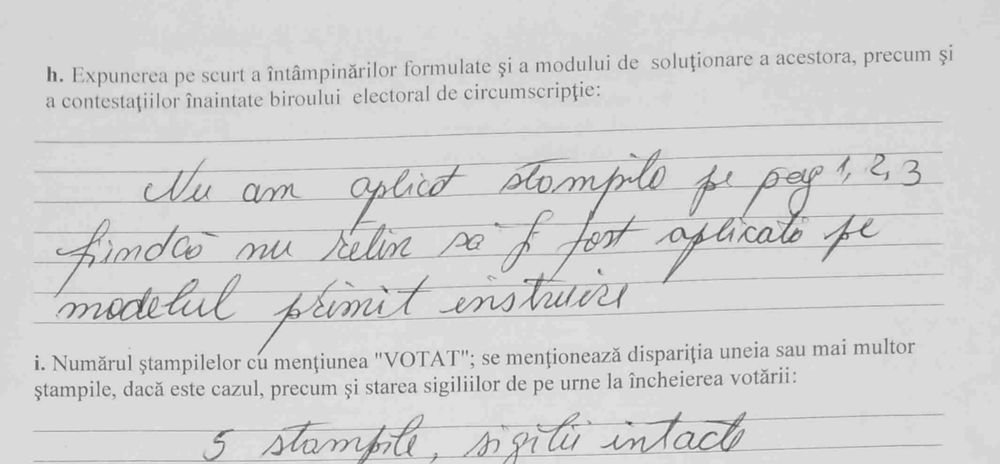 h. Expunerea pe scurt a întâmpinărilor formulate şi a modului de soluţionare a acestora, precum şi
a contestaţiilor înaintate biroului electoral de circumscripţie:
Nu am aplicat stampila pe pag 1, 2, 3
fiindcă nu rețin să fi fost aplicată pe
modelul primit instruire
i. Numărul ştampilelor cu menţiunea "VOTAT"; se menţionează dispariţia uneia sau mai multor
ştampile, dacă este cazul, precum şi starea sigiliilor de pe urne la încheierea votării:
5 stampile, sigilii intacte